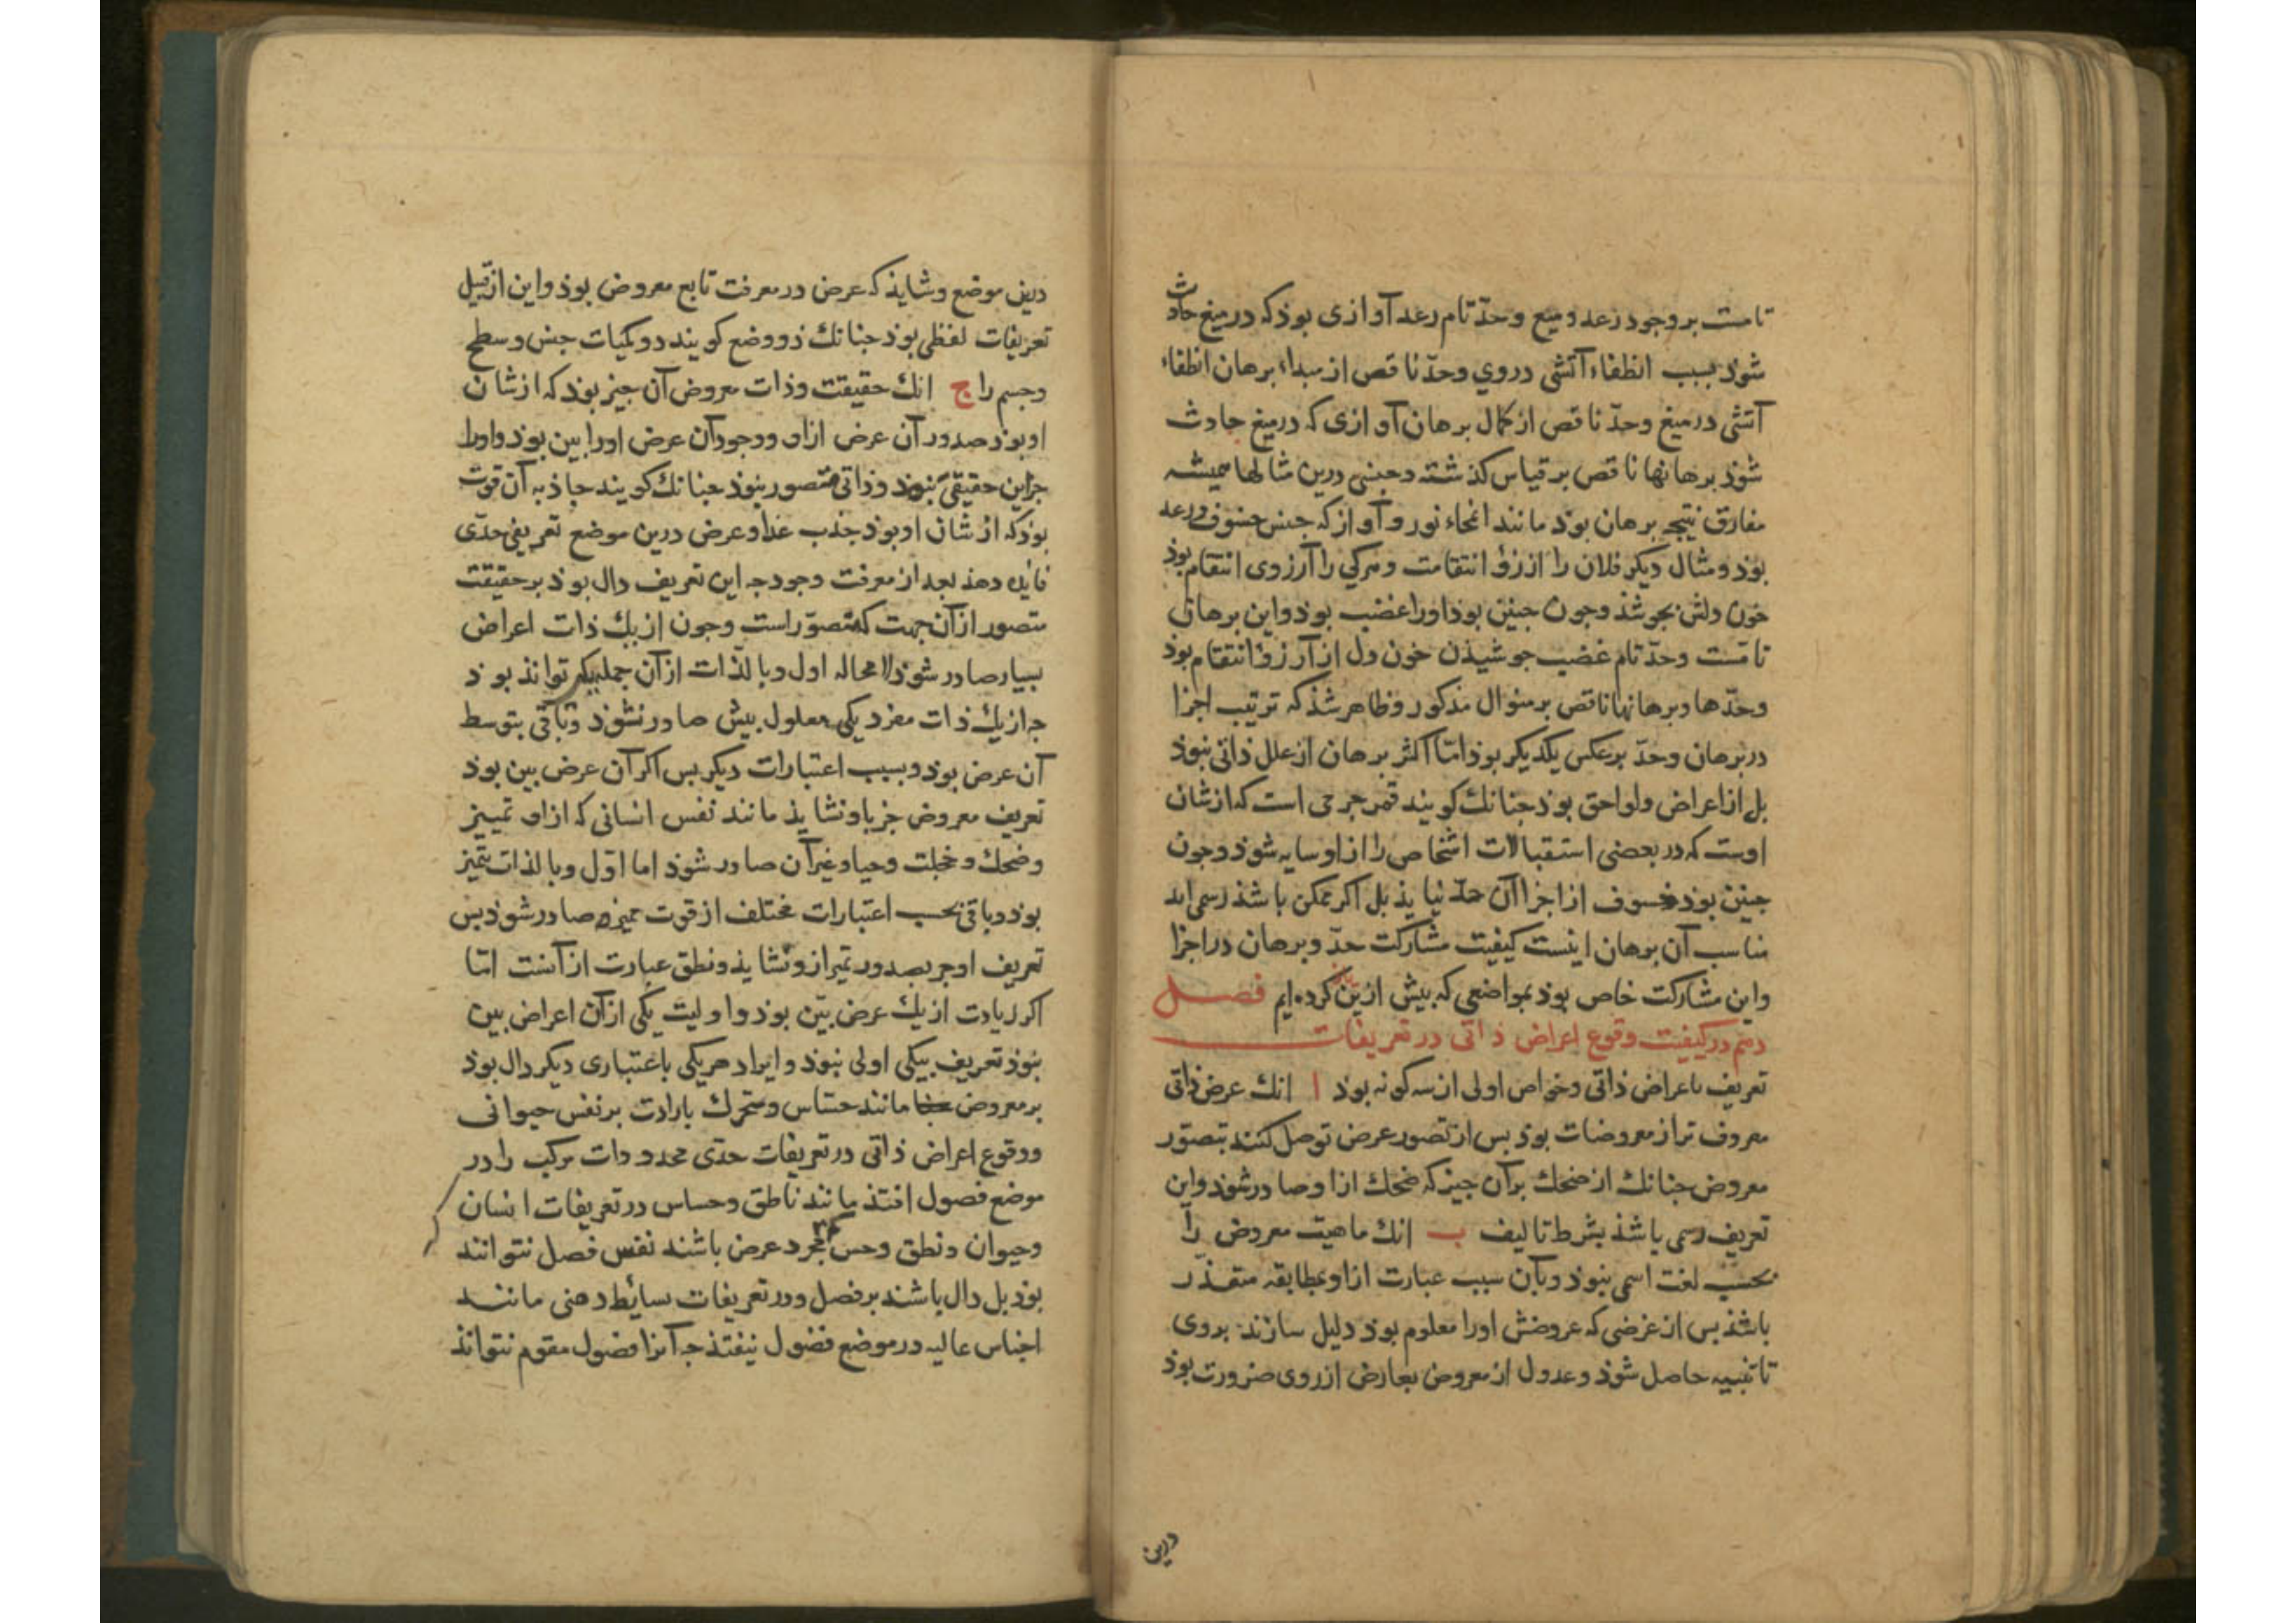 تامست بر وجود رعد و میع و حدّ تام رعد آوازی بوذ که در میغ حادث
شوذ بسبب انطفاء آتشی در وی و حدّ ناقص از مبداء برهان انطفاء
آتشی در میغ و حدّ ناقص از کمال برهان آوازی که در میغ حادث
شوذ برهانها ناقص بر قیاس کذشته و جنس درین مثالها همیشه
مفارق نتیجه برهان بوذ مانند انمحاء نور و آواز که جنس خسوف و رعد
بوذ و مثال دیکر فلان را ارزؤ انتقامست و هرکی را آرزوی انتقام بوذ
خون دلش بجوشذ و جون جنین بوذ اورا غضب بوذ و این برهان
تامّست و حدّ تام غضب جوشیذن خون دل از آرزؤ انتقام بوذ
و حدّها و برهانها ناقص بر منوال مذکور و ظاهر شذ که ترتیب اجزا
در برهان و حدّ بر عکس یکدیکر بوذ امّا اکثر برهان از علل ذاتی نبوذ
بل از اعراض و لواحق بوذ جنانك کویند قمر جرمی است که از شان
اوست که در بعضی استقبالات اشخاص را از او سایه شوذ و جون
جنین بوذ خسوف از اجزا آن حدّ نیایذ بل اکر ممکن باشذ رسمی اید
مناسب آن برهان اینست کیفیت مشارکت حدّ و برهان در اجزا
و این مشارکت خاص بوذ بمواضعی که بیش ازین کرده ایم فصل
دهم در کیفیت وقوع اعراض ذاتی در تعریفات
تعریف باعراض ذاتی و خواص اولی از سه کونه بوذ ا انك عرض ذاتی
معروف تر از معروضات بوذ بس از تصور عرض توصل کنند بتصوّر
معروض جنانك از ضحك بر آن جیز که ضحك ازا و صادر شوذ و این
تعریف رسمی باشذ بشرط تالیف ب انك ماهیت معروض را
بحسب لغت اسمی نبوذ و بآن سبب عبارت ازا و بمطابقه متعذّر
باشذ بس از عرضی که عروضش اورا معلوم بوذ دلیل سازند بر وی
تا تنبیه حاصل شوذ و عدول از معروض بعارض از روی ضرورت بوذ
درین
درین موضع و شایذ که عرض در معرفت تابع معروض بوذ و این از قبیل
تعریفات لفظی بوذ جنانك ذو وضع کویند دو کمیات جنس و سطح
و جسم را ج انك حقیقت و ذات معروض آن جیز بوذ که از شان
او بوذ صدور آن عرض ازاو و وجود آن عرض اورا بین بوذ و اورا
جز این حقیقی نبوذ و ذاتی متصور نبوذ جنانك کویند جاذبه آن قوت
بوذ که از شان او بوذ جذب غذا و عرض درین موضع تعریفی حدّی
فایده دهذ بعد از معرفت وجود جه این تعریف دال بوذ بر حقیقت
متصور از آن جهت که متصوّر است و جون از یك ذات اعراض
بسیار صادر شوذ لا محاله اول و بالذّات از آن جمله یکی تواند بوذ
جه از یك ذات مفرد یکی معلول بیش صادر نشوذ و باقی بتوسط
آن عرض بوذ و بسبب اعتبارات دیکر بس اکر آن عرض بین بوذ
تعریف معروض جز باو نشایذ مانند نفس انسانی که ازاو تمییز
و ضحك و خجلت و حیا و غیر آن صادر شوذ اما اوّل و بالذات تمیز
بوذ و باقی بحسب اعتبارات مختلف از قوت ممیزه صادر شوذ بس
تعریف او جز بصدور تمیز ازو نشایذ و نطق عبارت از آنست امّا
اکر زیادت از یك عرض بیّن بوذ و اولیت یکی از آن اعراض بین
نبوذ تعریف بیکی اولی نبوذ و ایراد هریکی باعتباری دیکر دال بوذ
بر معروض مانند حسّاس و متحرك بارادت بر نفس حیوانی
و وقوع اعراض ذاتی در تعریفات حدّی محدودات مرکب را در
موضع فصول افتذ مانند ناطق و حساس در تعریفات انسان
و حیوان و نطق و حس که مجرد عرض باشند نفس فصل نتوانند
بوذ بل دال باشند بر فصل و در تعریفات بسائط ذهنی مانند
اجناس عالیه در موضع فصول نیفتذ جه آنرا فصول مقوم نتواند